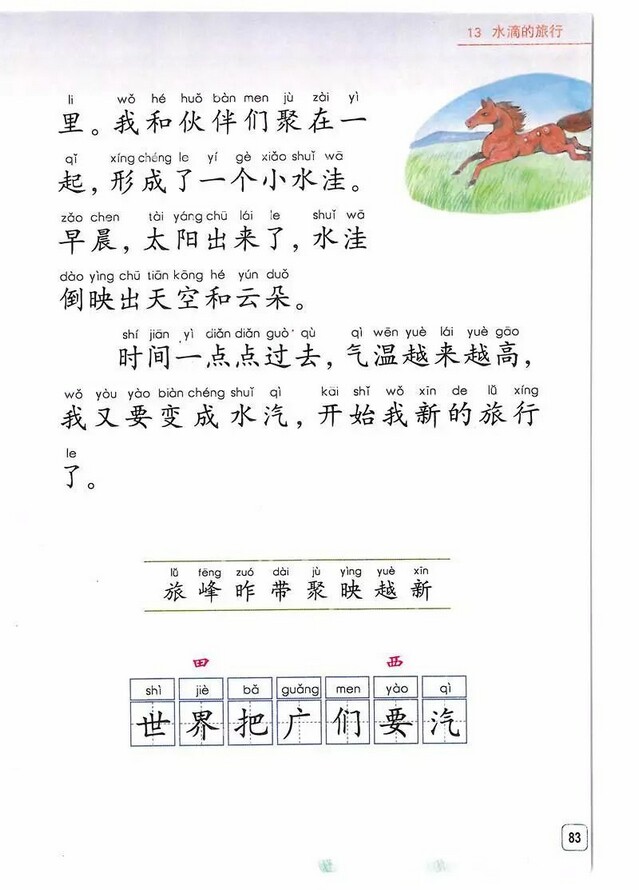 13 水滴的旅行
li wǒ hé huǒ bàn men jù zài yì
里。我和伙伴们聚在一
qǐ xíng chéng le yí gè xiǎo shuǐ wā
起，形成了一个小水洼。
zǎo chen tài yáng chū lái le shuǐ wā
早晨，太阳出来了，水洼
dào yìng chū tiān kōng hé yún duǒ
倒映出天空和云朵。
shí jiān yì diǎn diǎn guò qù qì wēn yuè lái yuè gāo
时间一点点过去，气温越来越高，
wǒ yòu yào biàn chéng shuǐ qì kāi shǐ wǒ xīn de lǚ xíng
我又要变成水汽，开始我新的旅行
le
了。
lǚ fēng zuó dài jù yìng yuè xīn
旅峰昨带聚映越新
田 西
shì jiè bǎ guǎng men yào qì
世界把广们要汽
83